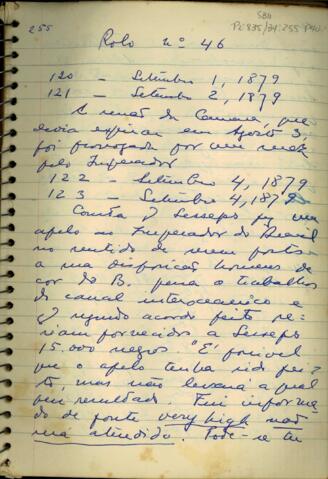 255
SBH
Pi 835/31:255 P40
Rolo nº 46
120 — Setembro 1, 1879
121 — Setembro 2, 1879
A reunião da Camara, que
devia expirar em Agosto 3,
foi prorrogada por um mez
pelo Imperador
122 — Setembro 4, 1879
123 — Setembro 4, 1879
Consta q Lesseps fez um
apelo ao Imperador do Brasil
no sentido de serem postos
a sua disposição homens de
cor do B. para o trabalhos
do canal interoceanico e
q segundo acordo feito se-
riam fornecidos a Lesseps
15.000 negros "É possivel
que o apelo tenha sido fei-
to, mas não levará a qual
quer resultado. Fui informa-
do de fonte very high não
será atendido. Pode-se ter